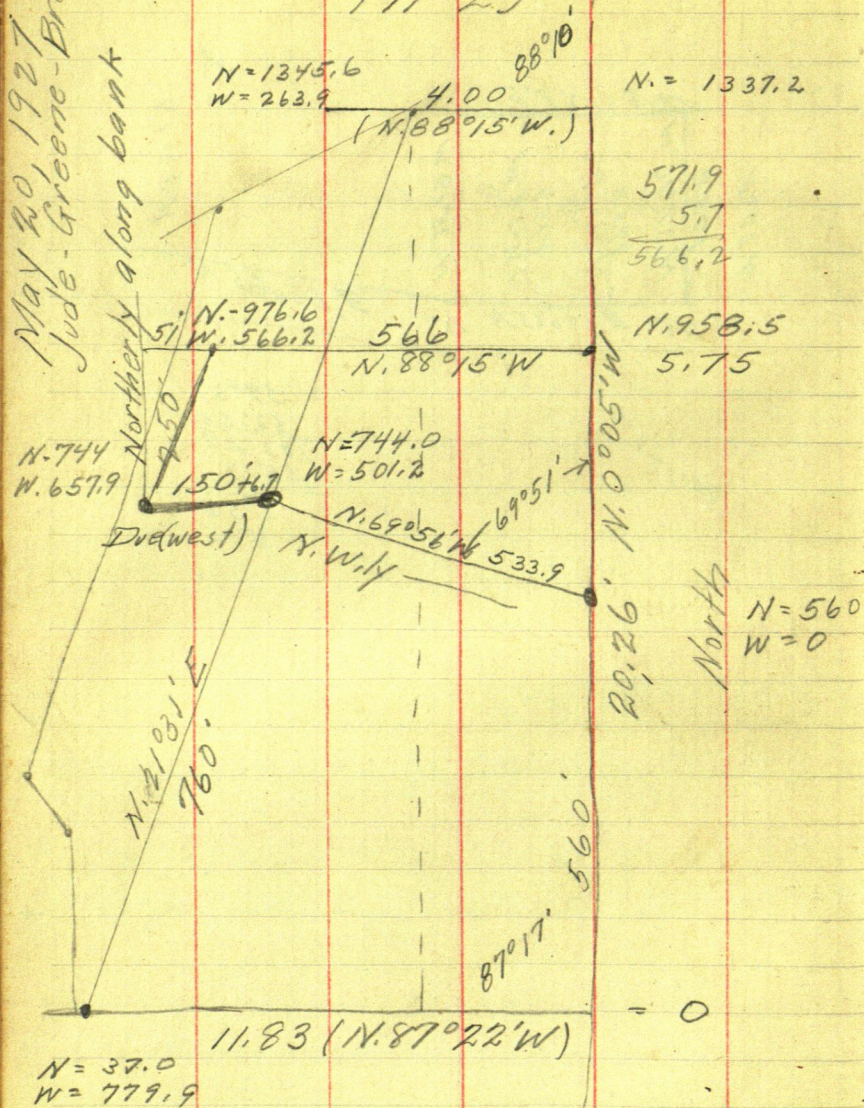 May 20, 1927
Jude-Greene-Br
Northerly along bank
88°10'
N=1345.6
W=263.9
4.00
(N.88°15'W.)
N.= 1337.2
571.9
5.7
566.2
51'
N.-976.6
W.566.2
566
N.88°15'W
N.958.5
5.75
250'
N-744
W.657.9
150'+6.7
Due(west)
N=744.0
W=501.2
N.69°56'W
533.9
69°51'
N.Wly
N.0°05'W
20.26'
North
N=560
W=0
N.21°31'E
760'
560'
87°17'
= 0
11.83 (N.87°22'W)
N= 37.0
W= 779.9